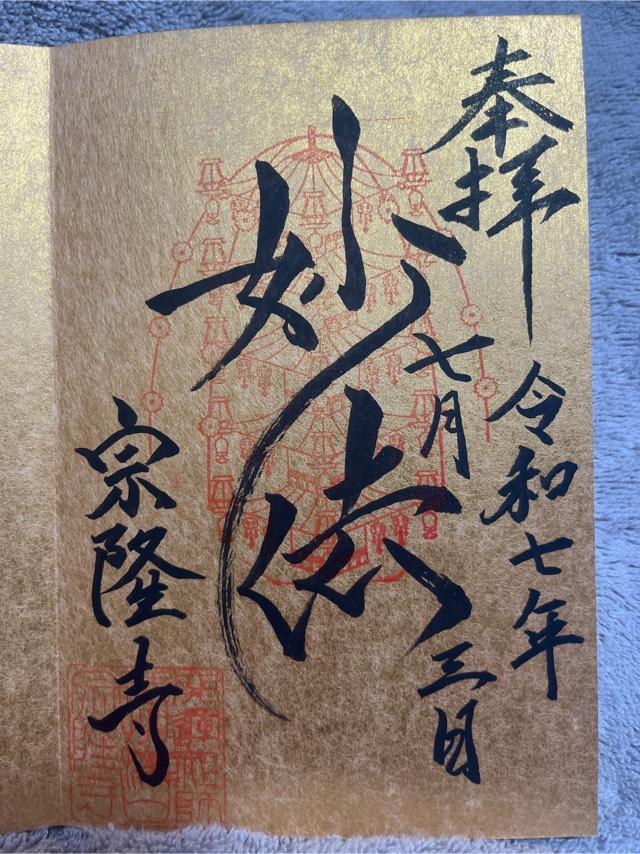 奉拝
令和七年
七月
三日
妙法
宗隆寺